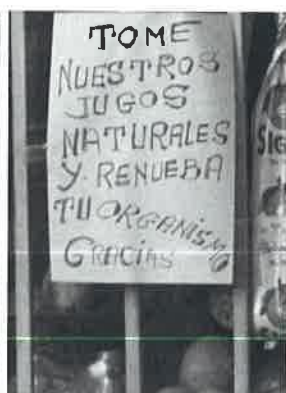 TOME
NUESTROS
JUGOS
NATURALES
Y. RENUEBA
TU ORGANISMO
GRACIAS
SIG